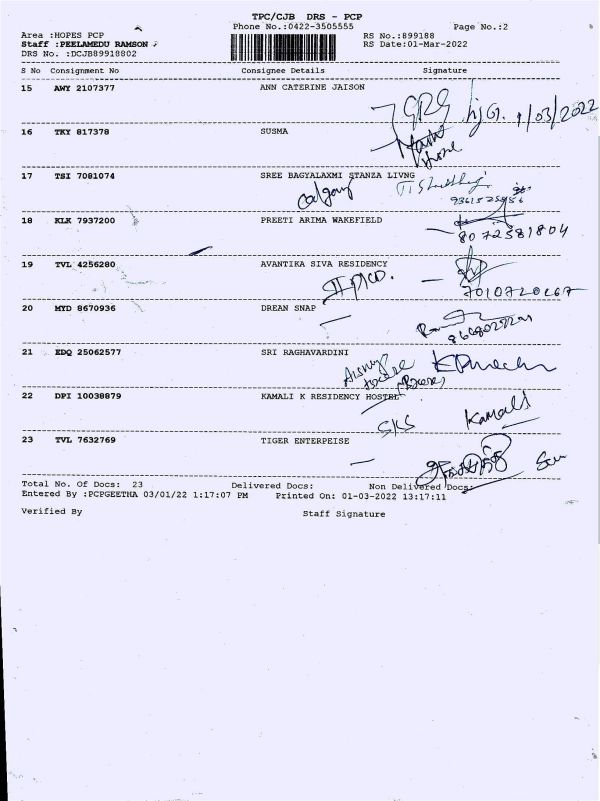 TPC/CJB DRS - PCP
Phone No.:0422-3505555 Page No.:2
Area :HOPES PCP RS No.:899188
Staff :PEELAMEDU RAMSON RS Date:01-Mar-2022
DRS No. :DCJB89918802
S No Consignment No Consignee Details Signature
15 AWY 2107377 ANN CATERINE JAISON
1/03/2022
16 TKY 817378 SUSMA
17 TSI 7081074 SREE BAGYALAXMI STANZA LIVNG
Calgary
18 KLK 7937200 PREETI ARIMA WAKEFIELD
8072581804
19 TVL 4256280 AVANTIKA SIVA RESIDENCY
20 MYD 8670936 DREAN SNAP
21 EDQ 25062577 SRI RAGHAVARDINI
22 DPI 10038879 KAMALI K RESIDENCY HOSTEL
SKS Kamali
23 TVL 7632769 TIGER ENTERPEISE
Total No. Of Docs: 23 Delivered Docs: Non Delivered Docs:
Entered By :PCPGEETHA 03/01/22 1:17:07 PM Printed On: 01-03-2022 13:17:11
Verified By Staff Signature